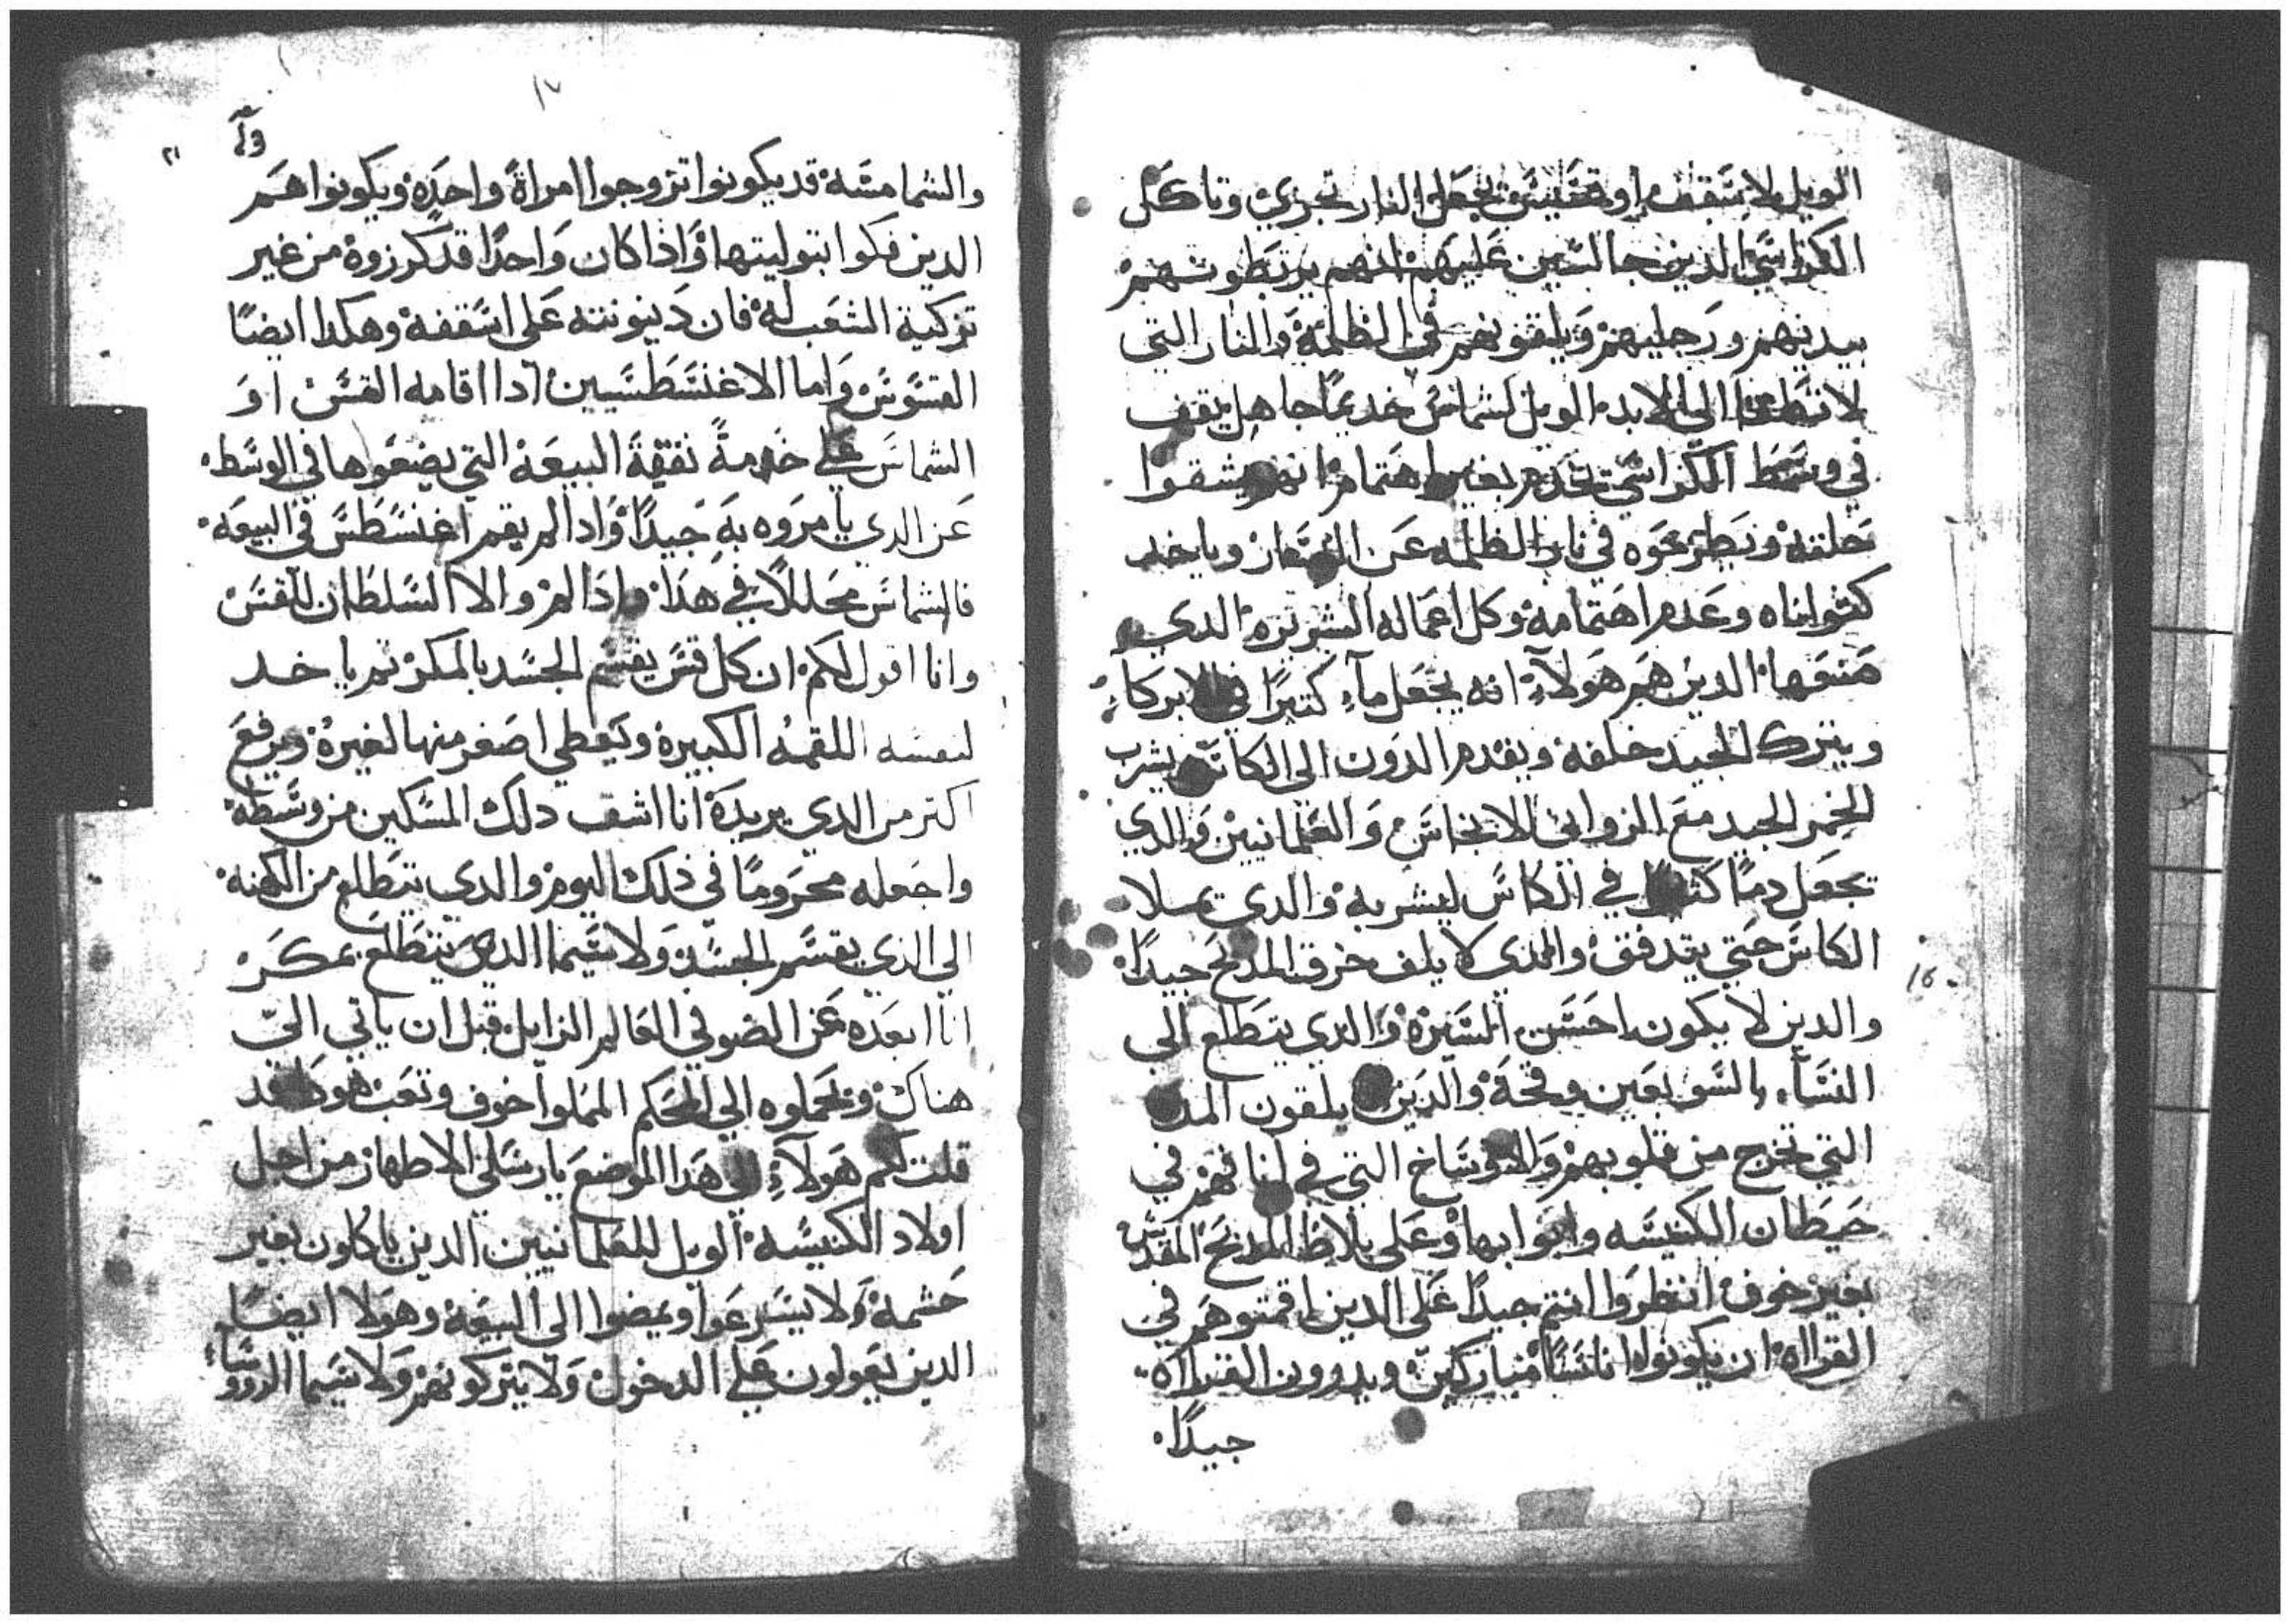 الويل لاسقف او قسيس تجعل النار تجري وتاكل
الكراسي الدين جالسين عليهم انهم يربطونهم
بيديهم ورجليهم ويلقونهم في الظلمة والنار التي
لا تنطفا الي الابد الويل لشماس خديما جاهل يقف
في وسط الكراسي تخدم بغير اهتمام انهم يشقوا
حلقه ويطرحوه في نار الظلمه عن اليسار وياخد
كثوابناه وعدم اهتمامه وكل اعماله الشريره الدي
صنعها الدين هم هولاء انه يجعل ماء كتيرا في الابركاء
ويترك الجيد خلفه ويقدم الدون الي الكاس يشرب
الخمر الجيد مع الزواني الانجاس والعلمانيين والدي
يجعل دما كتيرا في الكاس ليشربه والدي يملا
الكاس حتي يتدفق والدي لا يلف خرق المدبح جيدا
والدين لا يكون احسن السيره والدي يتطلع الي
النساء بالسو بعين وقحة والدين يلقون المده
التي تخرج من قلوبهم والاوساخ التي في انافهم في
حيطان الكنيسه وابوابها وعلي بلاط المدبح المقدس
بغير خوف انظروا انتم جيدا علي الدين اقمتوهم في
القرااه ان يكونوا اناسا مباركين ويدورون القرااه
جيدا
١٧
وا
٢١
والشمامسه قد يكونوا تزوجوا امراة واحده ويكونوا هم
الدين فكوا بتوليتها واذا كان واحدا قد كرزوه من غير
تزكية الشعب له فان دينونته علي اسقفه وهكدا ايضا
القسوس واما الاغنسطسيين ادا اقامه القس او
الشماس علي خدمة نفقة البيعه التي يضعوها في الوسط
عن الدي يامروه به جيدا وادا لم يقم اغنسطس في البيعه
فالشماس محللا في هدا وادا لم والا السلطان للقس
وانا اقول لكم ان كل قس يقسم الجسد بالمكر تم ياخد
لنفسه اللقمه الكبيرة ويعطي اصغر منها لغيره ويرفع
اكتر من الدي يريده انا اشق دلك المسكين من وسطه
واجعله محروما في ذلك اليوم والدي يتطلع من الكهنه
الي الذي يقسم الجسد ولا سيما الدي يتطلع بمكر
انا ابعده عن الضو في العالم الزايل قبل ان ياتي الي
هناك ويحملوه الي الحكم المملوا خوف وتعب هودا قد
قلت لكم هولاء الي هدا الموضع يا رسلي الاطهار من اجل
اولاد الكنيسه الويل للعلمانيين الدين ياكلون بغير
حشمة ولا يسرعوا ويمضوا الي البيعه وهولا ايضا
الدين يعولون علي الدخول ولا يتركونهم ولا سيما الروسا